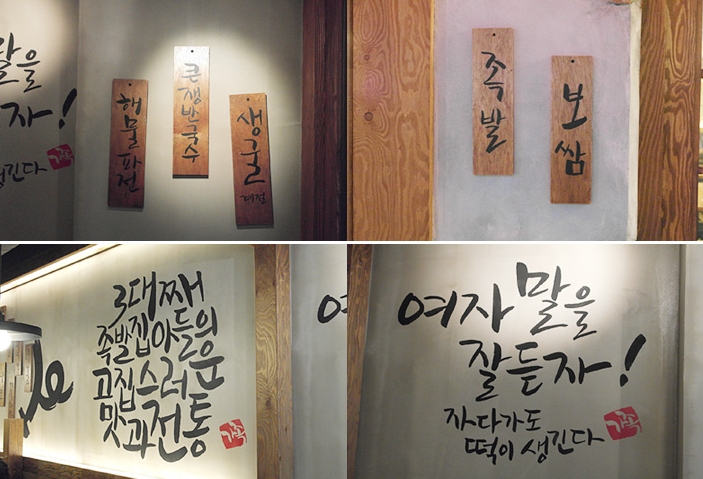 말을
자!
생긴다
해물파전
큰쟁반국수
생굴
계절
족발
보쌈
3대째
족발집아들의
고집스러운
맛과전통
가족
여
여자 말을
잘듣자!
자다가도
떡이 생긴다
가족